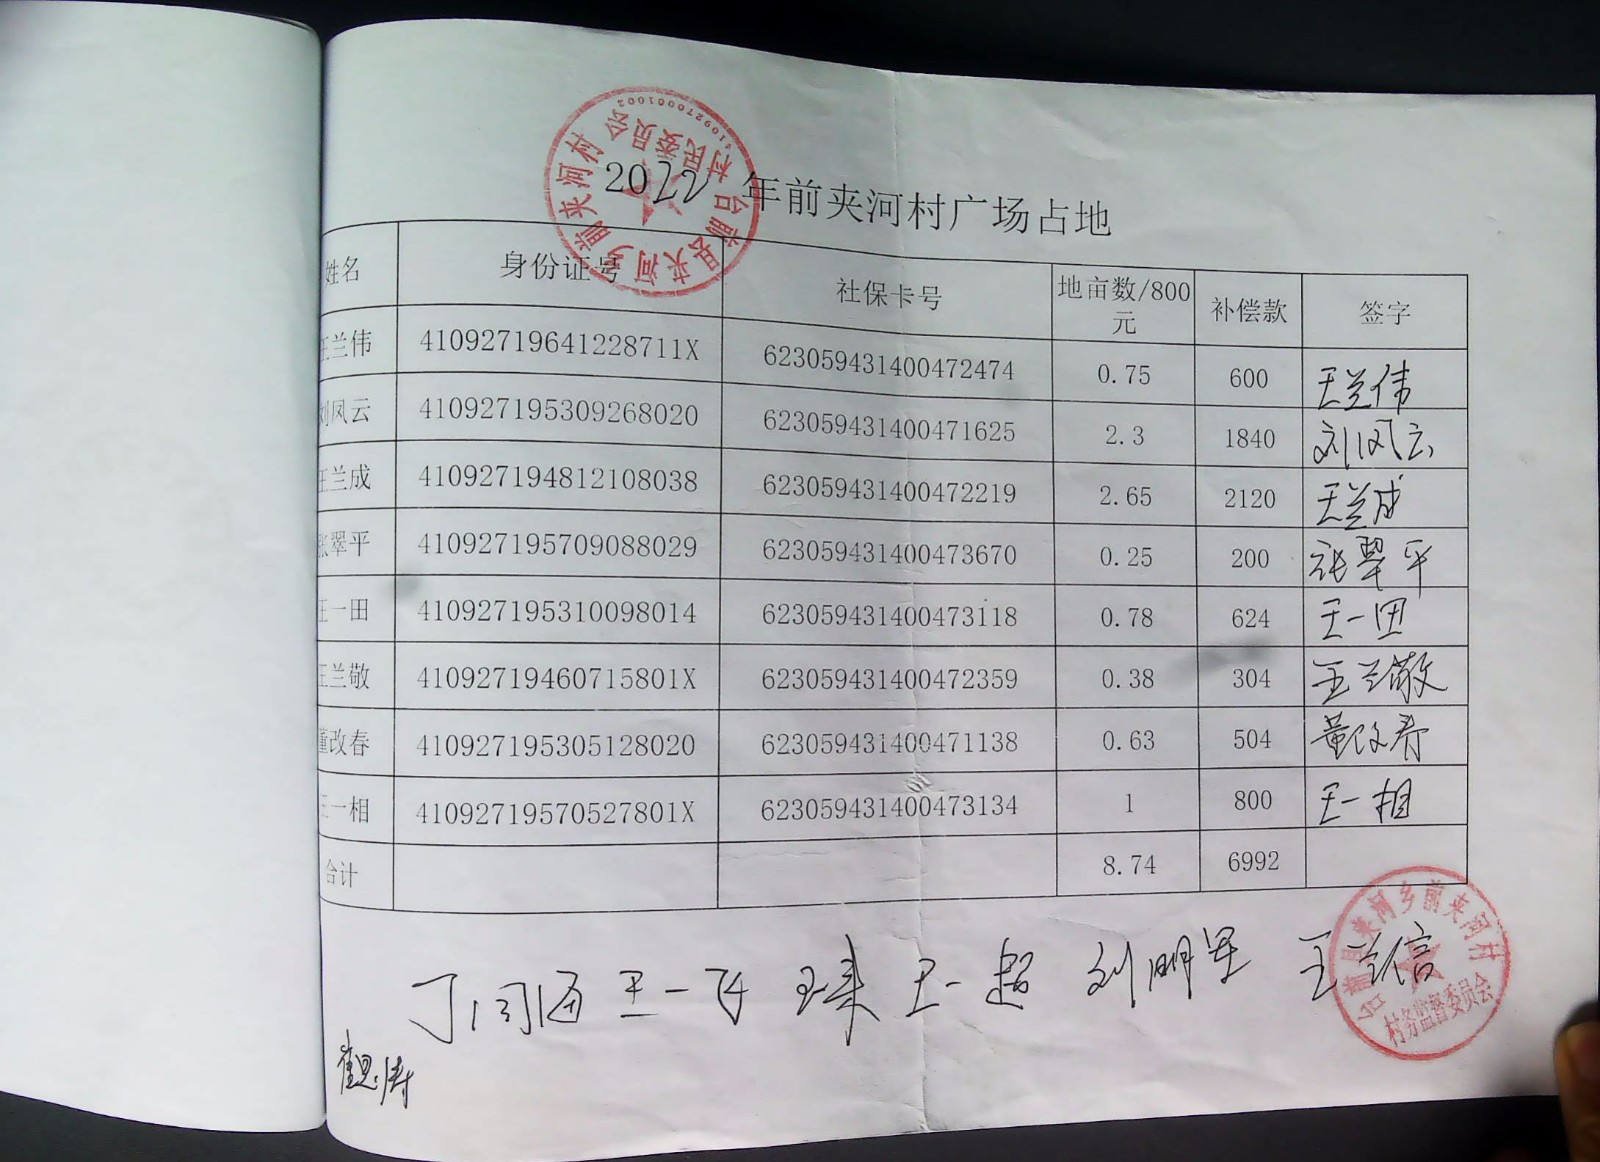 2022 年前夹河村广场占地
姓名 身份证号 社保卡号 地亩数/800元 补偿款 签字
王兰伟 41092719641228711X 623059431400472474 0.75 600 王兰伟
刘凤云 410927195309268020 623059431400471625 2.3 1840 刘凤云
王兰成 410927194812108038 623059431400472219 2.65 2120 王兰成
张翠平 410927195709088029 623059431400473670 0.25 200 张翠平
王一田 410927195310098014 623059431400473118 0.78 624 王一田
王兰敬 41092719460715801X 623059431400472359 0.38 304 王兰敬
董改春 410927195305128020 623059431400471138 0.63 504 董改春
王一相 41092719570527801X 623059431400473134 1 800 王一相
合计 8.74 6992
丁同海 王一飞 王一超 刘明星 王兰信
崔思涛
台前县夹河乡前夹河村村民委员会
4109270001002
台前县夹河乡前夹河村
村务监督委员会